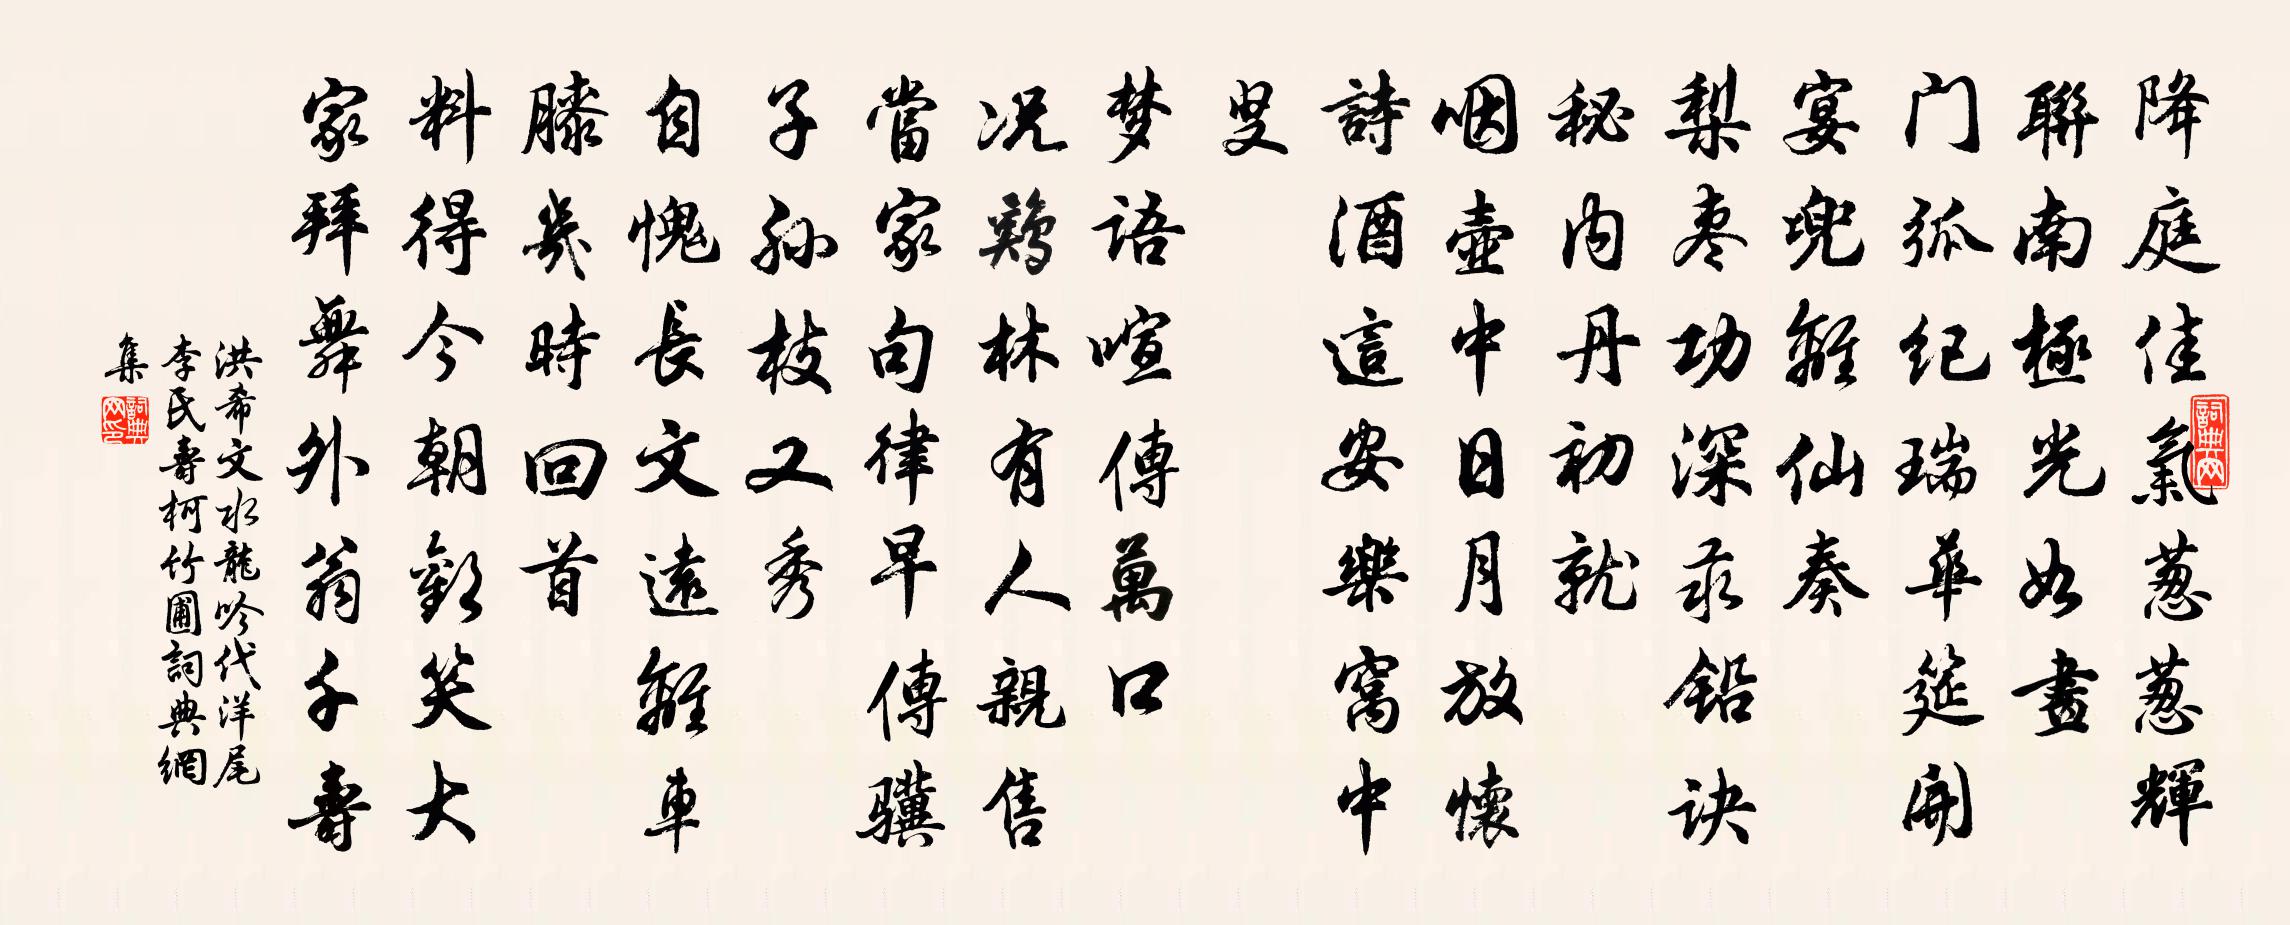 降庭佳氣葱葱輝
聯南極光如晝
门弧纪瑞華筵開
宴兜離仙奏
梨枣功深汞铅诀
秘内丹初就
咽壺中日月放懷
詩酒這安樂窩中
叟
梦語喧傳萬口
况鷄林有人親售
當家句律早傳骥
子孙枝又秀
自愧長文遠離車
膝幾時回首
料得今朝歡笑大
家拜舞外翁千壽
洪希文水龍吟代洋尾
李氏壽柯竹圃詞典網
集
詞典网
詞典网印